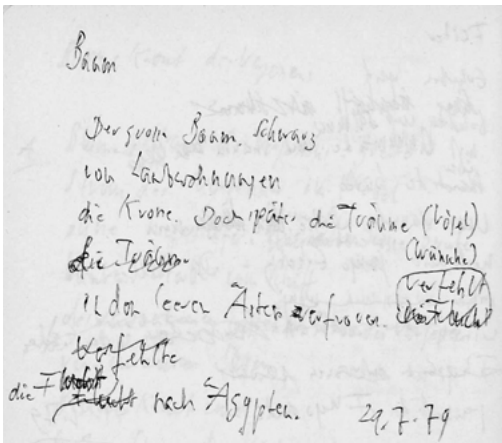 Baum
Der große Baum schwarz
von Laubwohnungen
die Krone. Doch später die Träume (Vögel)
(Wünsche)
die Träume
in den leeren Ästen erfroren. verfehlt
Verfehlte
die Flucht nach Ägypten.
29.7.79